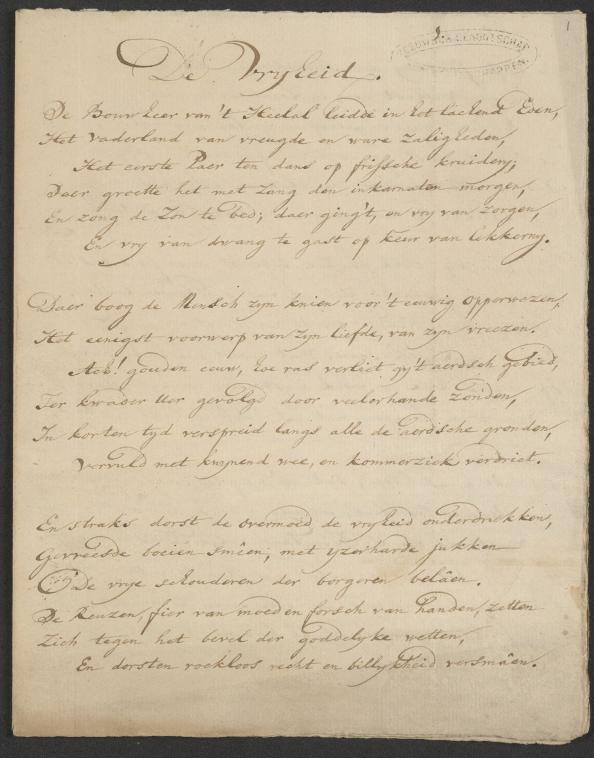 1
ZEEUWSCH GENOOTSCHAP
De Vryheid.
De Bouwheer van't Heelal leidde in het lachend Eden,
Het Vaderland van vreugde en ware zaligheden,
Het eerste Paer ten dans op frissche kruidery;
Daer groette het met zang den inkarnaten morgen,
En zong de Zon te bed; daer ging't, en vry van zorgen,
En vry van dwang te gast op keur van lekkerny.
Daer boog de Mensch zyn knien voor't eeuwig Opperwezen,
Het eenigst voorwerp van zyn liefde, van zyn vreezen.
Ach! gouden eeuw, hoe ras verliet gy't aerdsch gebied,
Ter kwader uer gevolgd door veelerhande zonden,
In korten tyd verspreid langs alle de aerdsche gronden,
Vervuld met kwynend wee, en kommerziek verdriet.
En straks dorst de overmoed de vryheid onderdrukken,
Gevreesde boeien smêen; met yzerharde jukken
De vrye schouderen der borgeren belâen.
De Reuzen, fier van moed en forsch van handen, zetten
Zich tegen het bevel der goddelyke wetten,
En dorsten roekloos recht en billykheid versmâen.